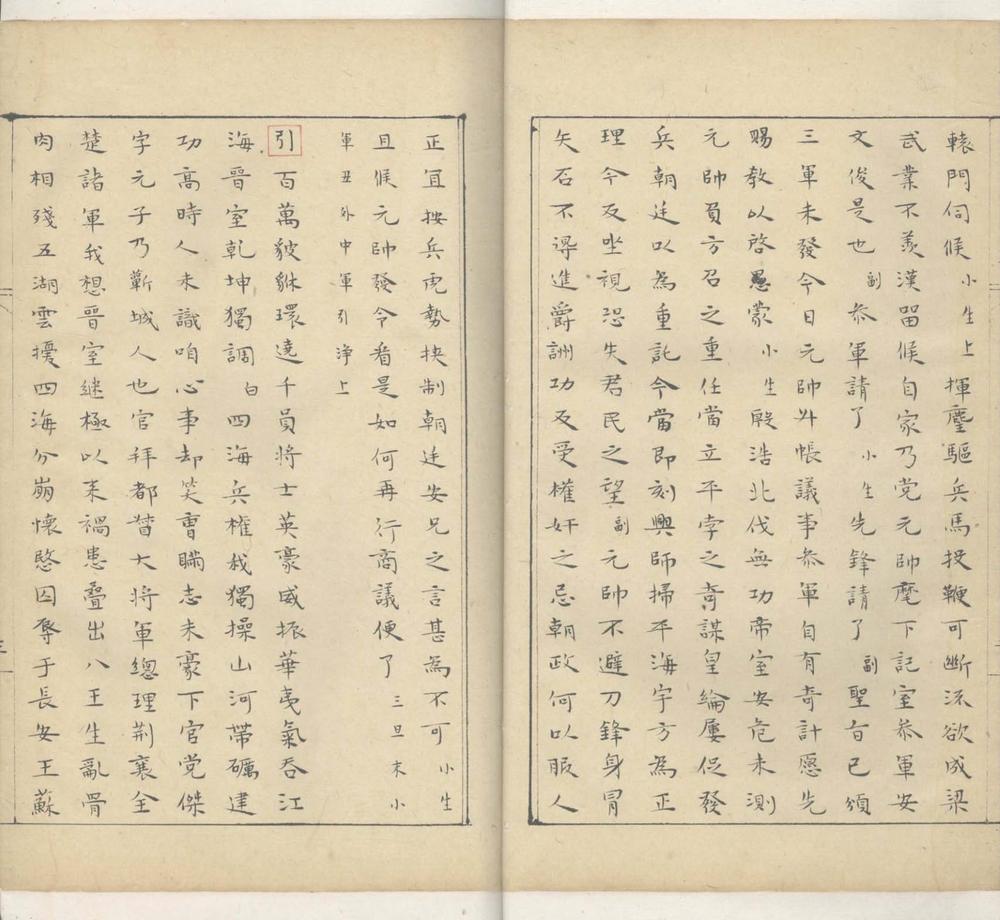 轅門伺候小生上揮麈驅兵馬投鞭可斷流欲成梁
武業不羨漢畱候自家乃党元帥麾下記室叅軍安
文俊是也副叅軍請了小生先鋒請了副聖旨已頒
三軍未發今日元帥升帳議事叅軍自有奇計愿先
賜教以啓愚蒙小生殷浩北伐無功帝室安危未測
元帥負方召之重任當立平孛之奇謀皇綸屢促發
兵朝廷以為重託今當即刻興師掃平海宇方為正
理今反坐視恐失君民之望副元帥不避刀鋒身冒
矢石不得進爵詶功反受權奸之忌朝政何以服人
正宜按兵虎勢挾制朝廷安兄之言甚為不可小生
且候元帥發令看是如何再行商議便了三旦末小
軍丑外中軍引淨上
引百萬貔貅環遶千員將士英豪威振華夷氣吞江
海晉室乾坤獨調白四海兵權我獨操山河帶礪建
功高時人未識咱心事却笑曹瞞志未豪下官党傑
字元子乃蘄城人也官拜都督大將軍總理荆襄全
楚諸軍我想晉室継極以来禍患疊出八王生亂骨
肉相殘五湖雲擾四海分崩懷愍囚辱于長安王蘇